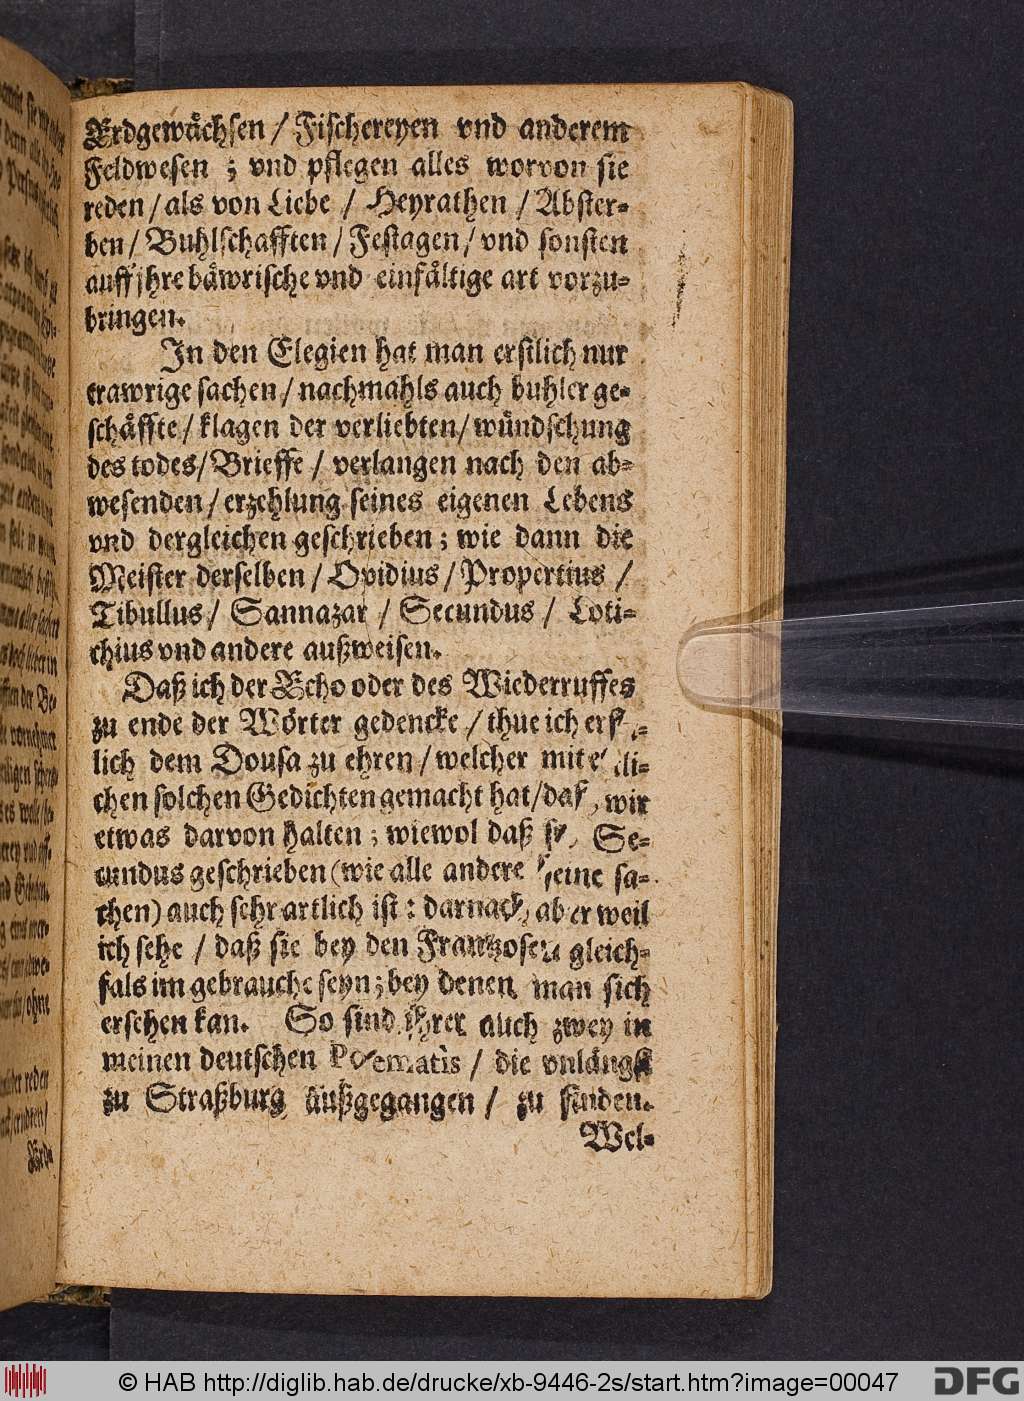 Erdgewächsen / Fischereyen vnd anderem
Feldwesen ; vnd pflegen alles worvon sie
reden / als von Liebe / Heyrathen / Abster-
ben / Buhlschafften / Festagen / vnd sonsten
auff jhre bäwrische vnd einfältige art vorzu-
bringen.
In den Elegien hat man erstlich nur
trawrige sachen / nachmahls auch buhler ge-
schäffte / klagen der verliebten / wündschung
des todes / Brieffe / verlangen nach den ab-
wesenden / erzehlung seines eigenen Lebens
vnd dergleichen geschrieben ; wie dann die
Meister derselben / Ovidius / Propertius /
Tibullus / Sannazar / Secundus / Loti-
chius vnd andere außweisen.
Daß ich der Echo oder des Wiederruffes
zu ende der Wörter gedencke / thue ich erst-
lich dem Dousa zu ehren / welcher mit etli-
chen solchen Gedichten gemacht hat / daß wir
etwas darvon halten ; wiewol daß so Se-
cundus geschrieben (wie alle andere seine sa-
chen) auch sehr artlich ist : darnach aber weil
ich sehe / daß sie bey den Frantzosen gleich-
fals im gebrauche seyn ; bey denen man sich
ersehen kan. So sind jhrer auch zwey in
meinen deutschen Poematìs / die vnlängst
zu Straßburg außgegangen / zu finden.
Wel-
© HAB http://diglib.hab.de/drucke/xb-9446-2s/start.htm?image=00047
DFG